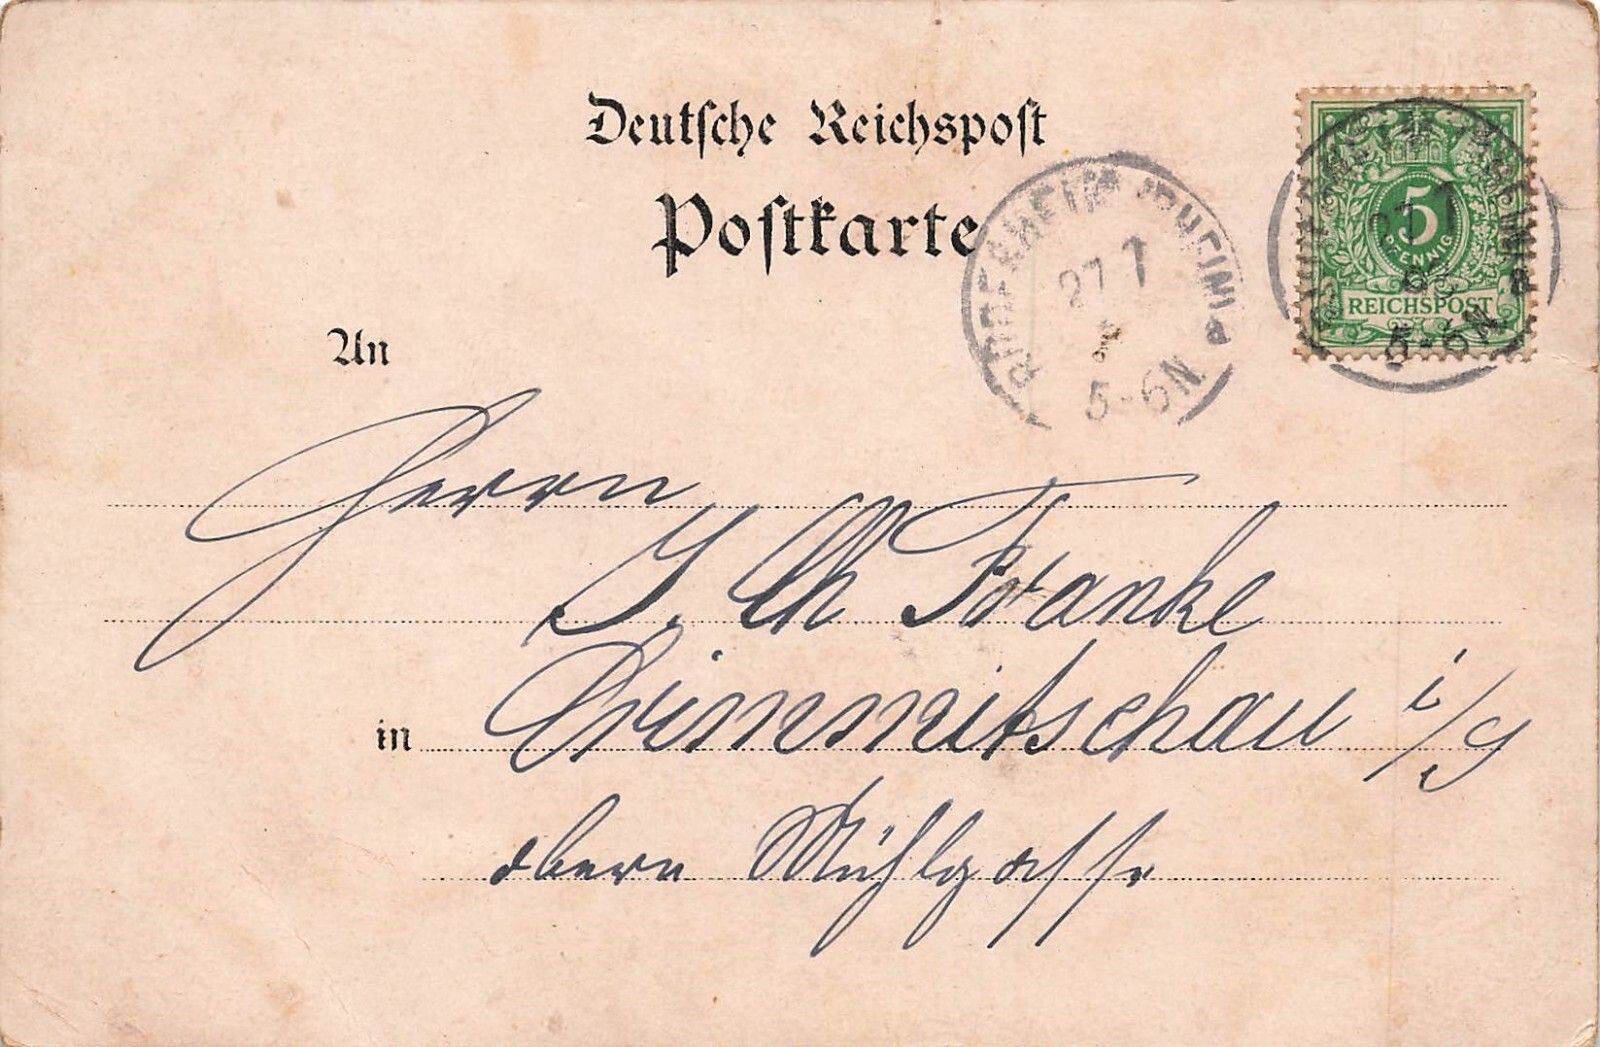 Deutsche Reichspost
Postkarte
RÜDESHEIM (RHEIN) a
27 7
5-6N
5
PFENNIG
REICHSPOST
27 7
5-6N
An
Herrn
J. Ch Franke
in Crimmitschau i/S
obere Mühlgasse